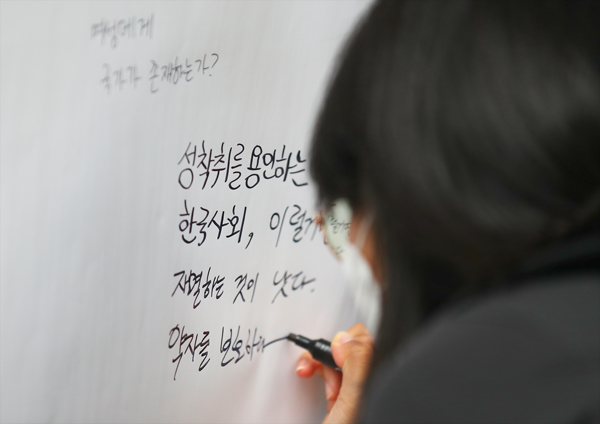 여성에게
국가가 존재하는가?
성착취를 용인하는
한국사회, 이럴거
자멸하는 것이 낫다.
약자를 보호하